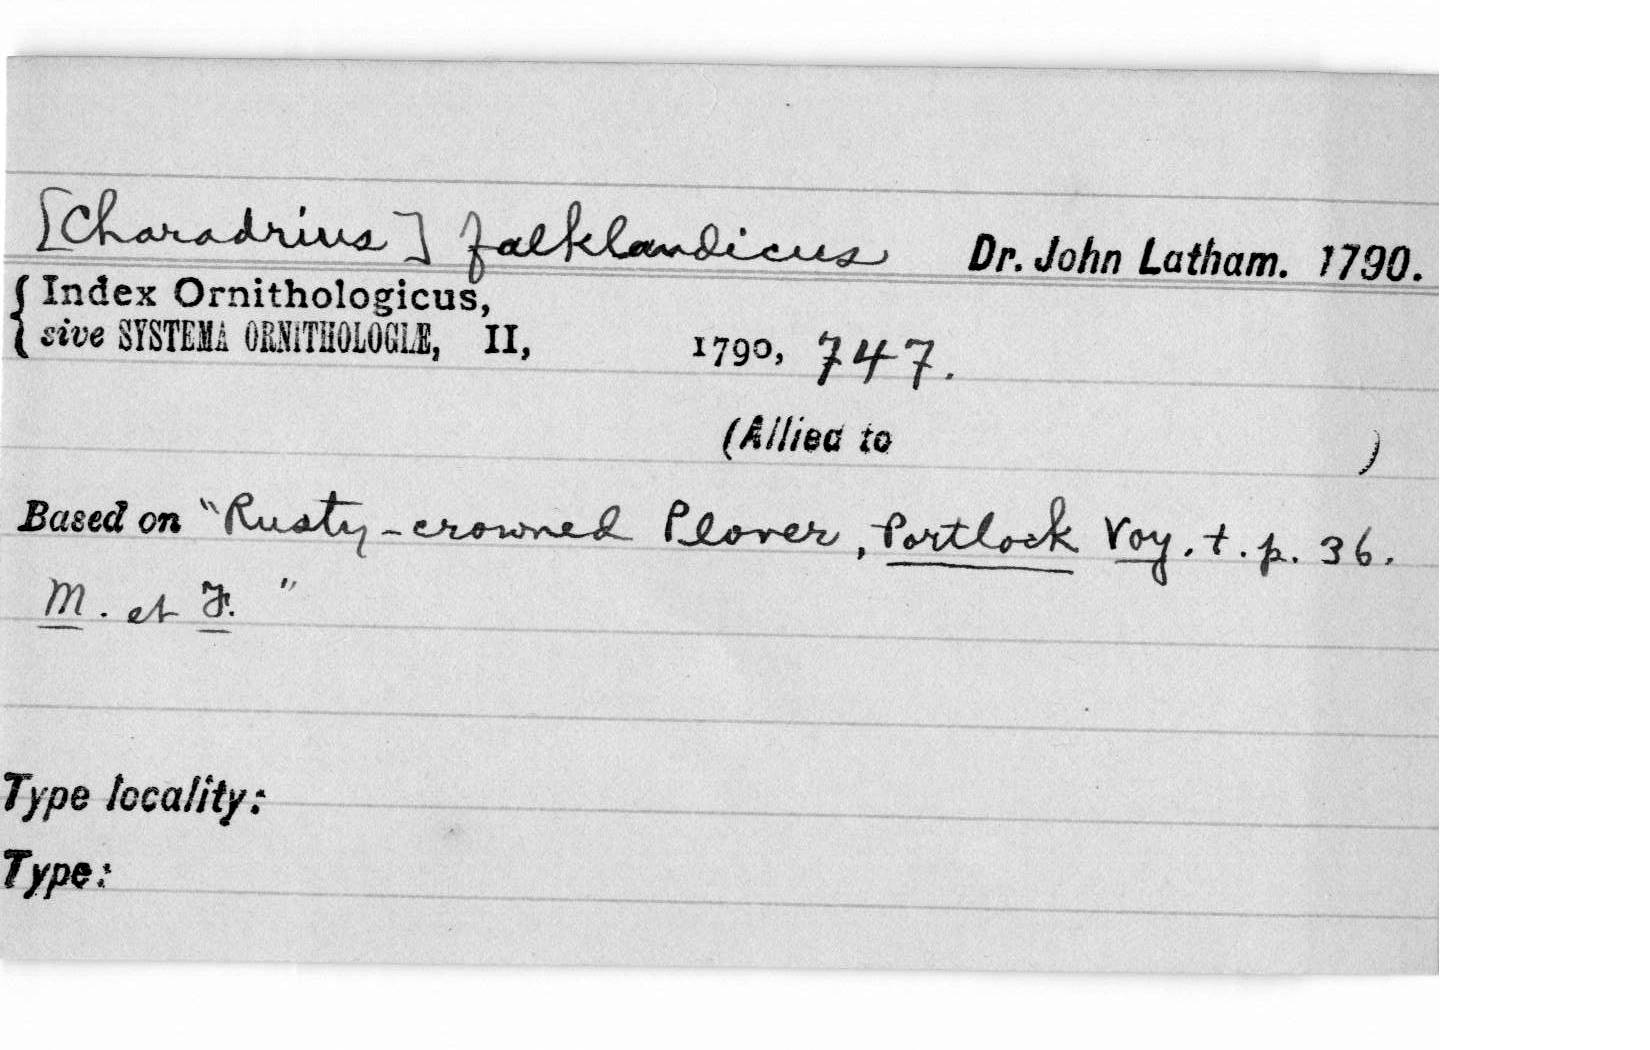 [Charadrius] falklandicus Dr. John Latham. 1790.
Index Ornithologicus,
sive SYSTEMA ORNITHOLOGIÆ, II, 1790, 747.
(Allied to )
Based on "Rusty-crowned Plover, Portlock Voy. t. p. 36.
M. et F. "
Type locality:
Type: